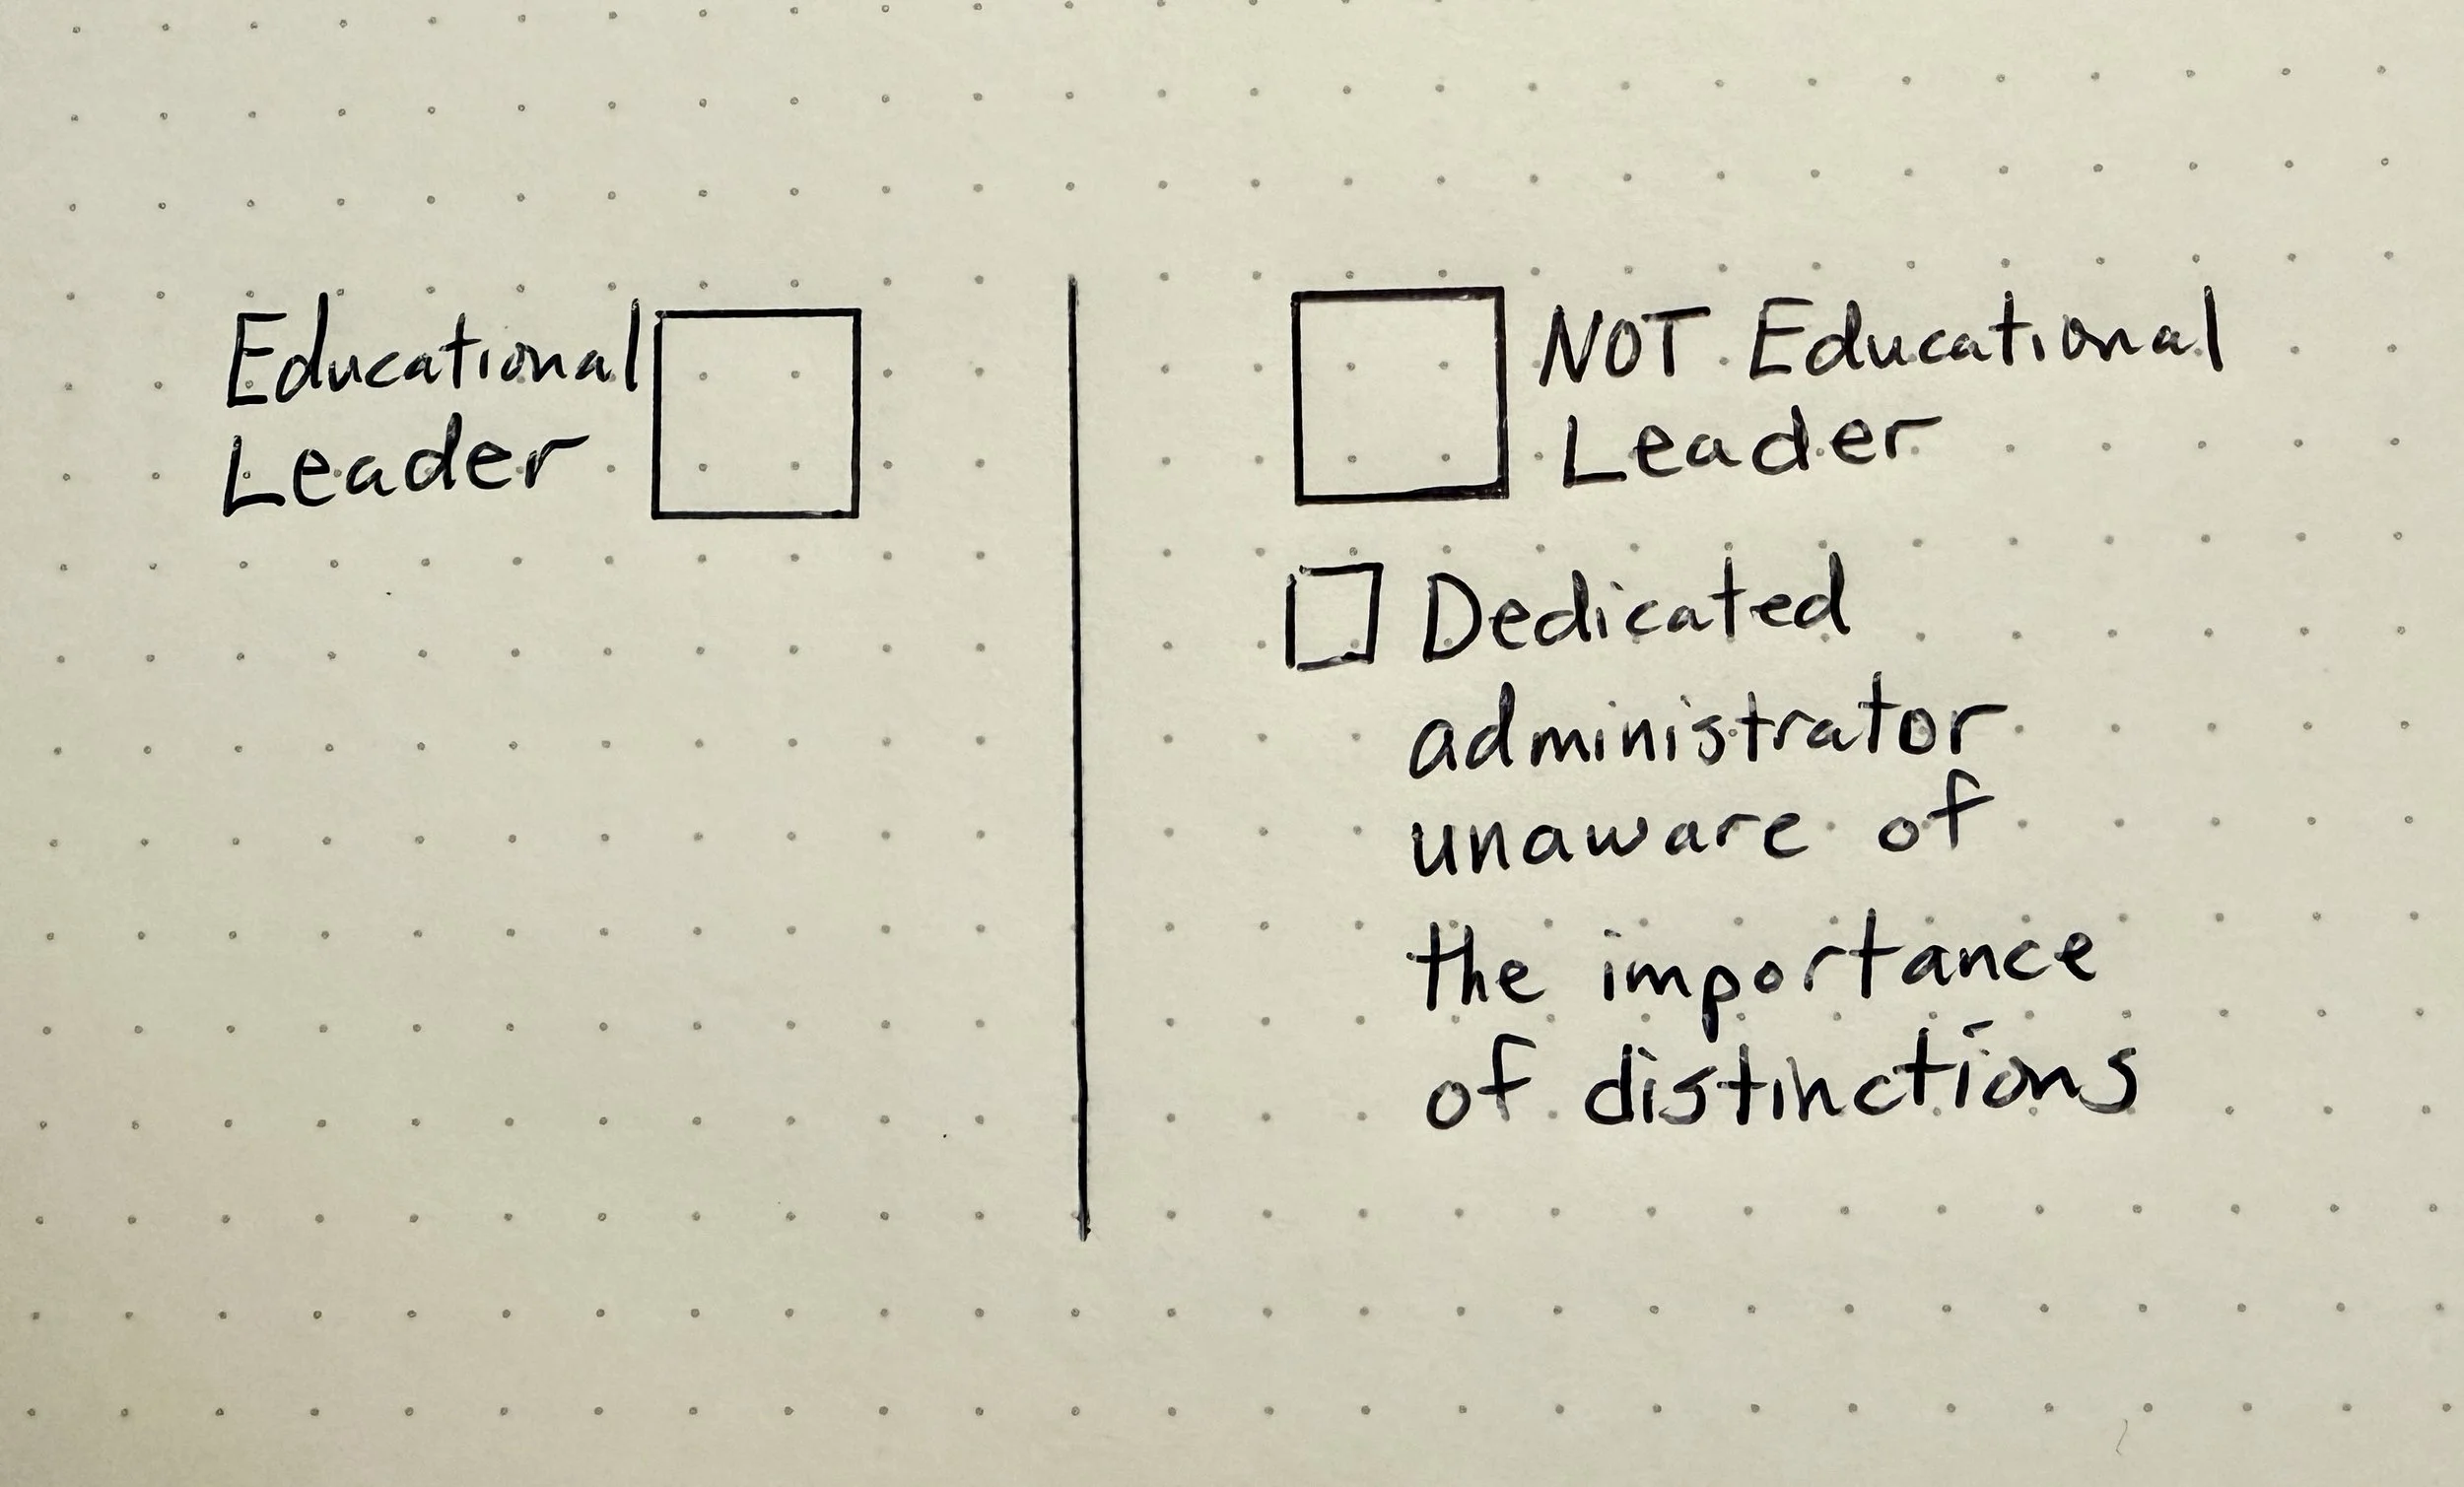 Educational
Leader
NOT Educational
Leader
Dedicated
administrator
unaware of
the importance
of distinctions